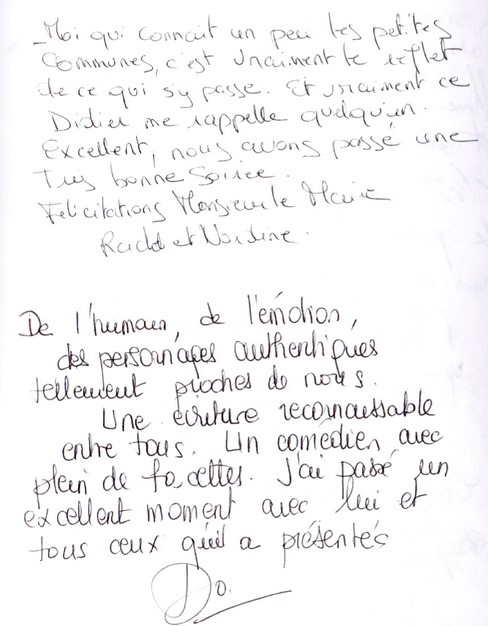 _Moi qui connait un peu les petites
communes, c'est vraiment le reflet
de ce qui s'y passe. Et vraiment ce
Didier me rappelle quelqu'un.
Excellent, nous avons passé une
très bonne soirée.
Felicitations Monsieur le Maire
et
De l'humain, de l'émotion,
des personnages authentiques
tellement proches de nous.
Une écriture reconnaissable
entre tous. Un comédien avec
plein de facettes. J'ai passé un
excellent moment avec lui et
tous ceux qu'il a présentés
Do.